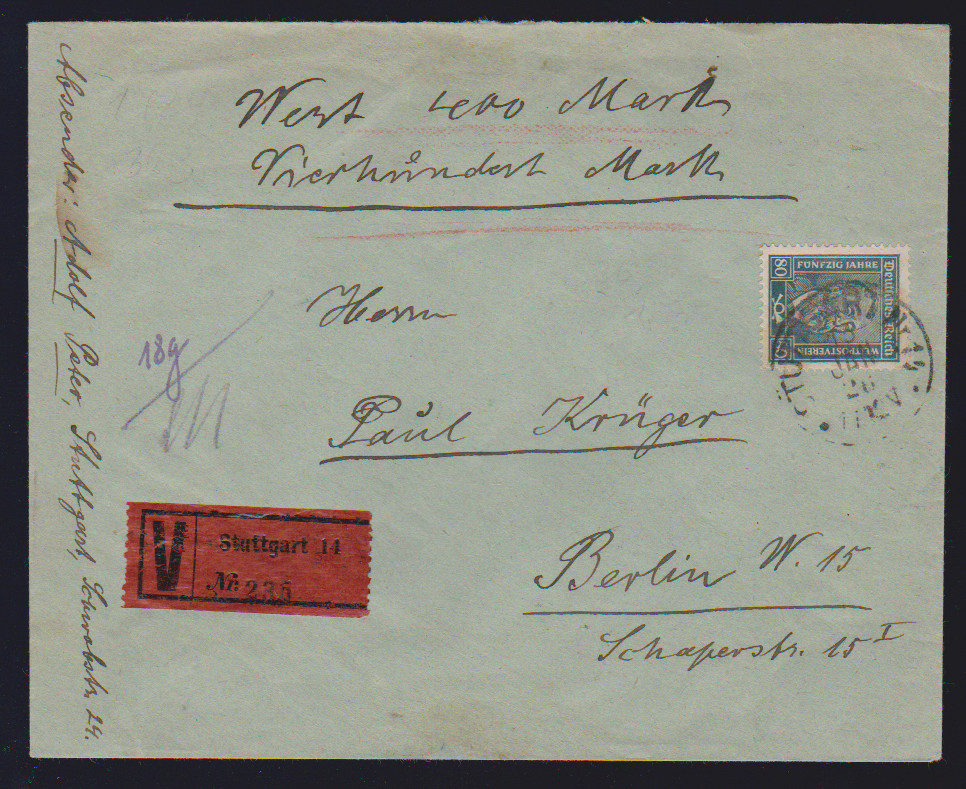 Wert 400 Mark
Vierhundert Mark
Herrn
Paul Krüger
Berlin W. 15
Schaperstr. 15 I
Absender: Adolf Peter, Stuttgart, Schwabstr. 29.
18g
V
Stuttgart 14
№ 235
Deutsches Reich
FÜNFZIG JAHRE
WELTPOSTVEREIN
80
STUTTGART
JAN